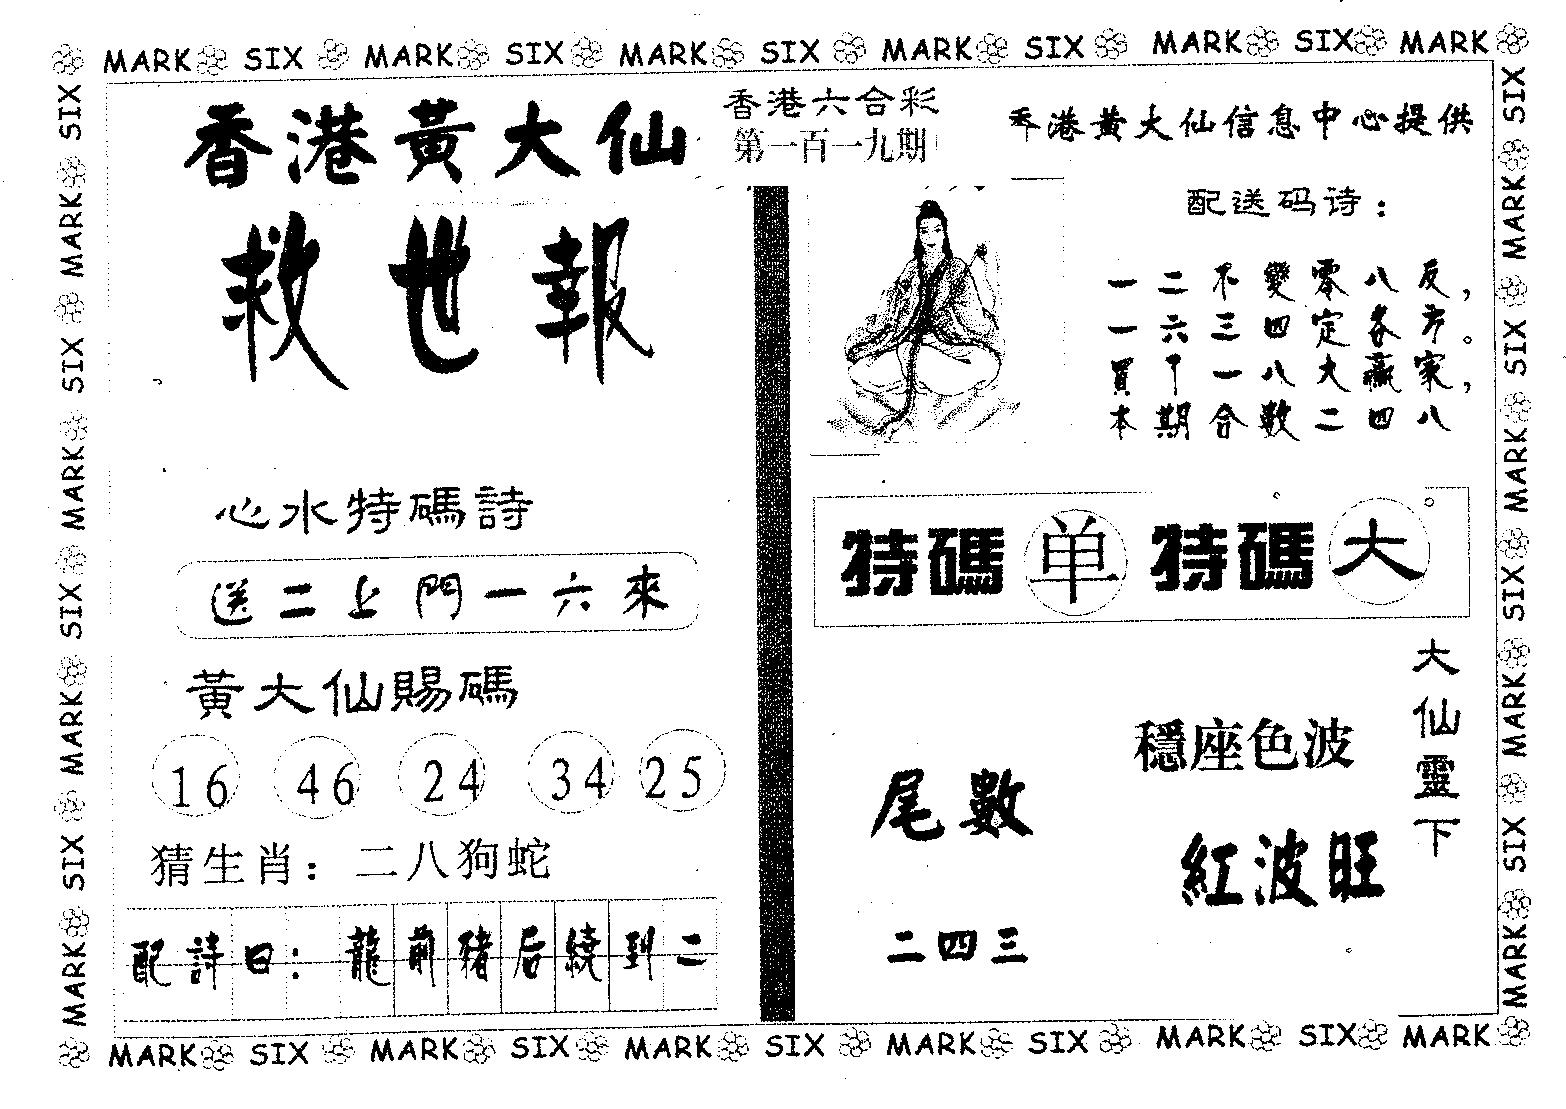 MARK SIX MARK SIX MARK SIX MARK SIX MARK SIX MARK
香港黃大仙
救世報
香港六合彩
第一百一九期
香港黃大仙信息中心提供
配送码诗：
一二不變零八反，
一六三四定各方。
買下一八大贏家，
本期合数二四八
心水特碼詩
送二上門一六來
黃大仙賜碼
16 46 24 34 25
猜生肖：二八狗蛇
配詩曰：龍前豬后繞到二
特碼单 特碼大
大仙靈下
穩座色波
紅波旺
尾數
二四三
SIX MARK SIX MARK SIX MARK SIX MARK
SIX MARK SIX MARK SIX MARK SIX MARK
MARK SIX MARK SIX MARK SIX MARK SIX MARK SIX MARK